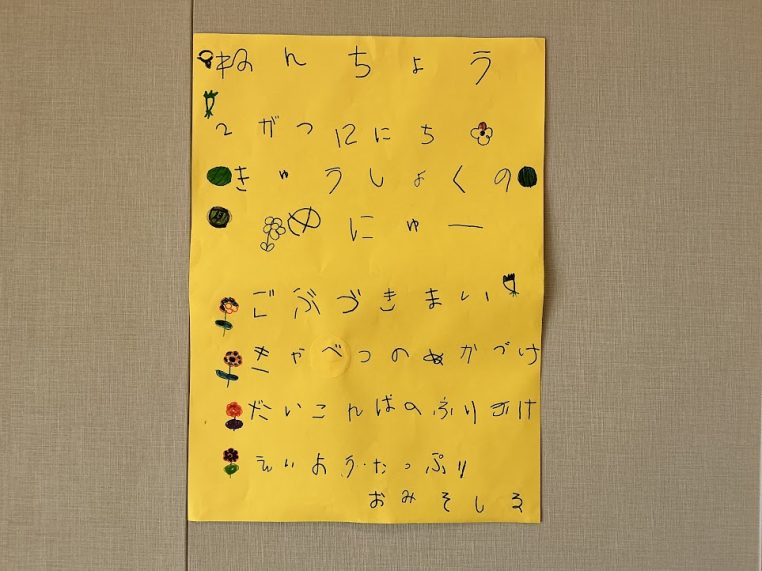 ねんちょう
2がつ12にち
きゅうしょくの
めにゅー
ごぶづきまい
きゃべつのぬかづけ
だいこんばのふりかけ
えいようたっぷり
おみそしる